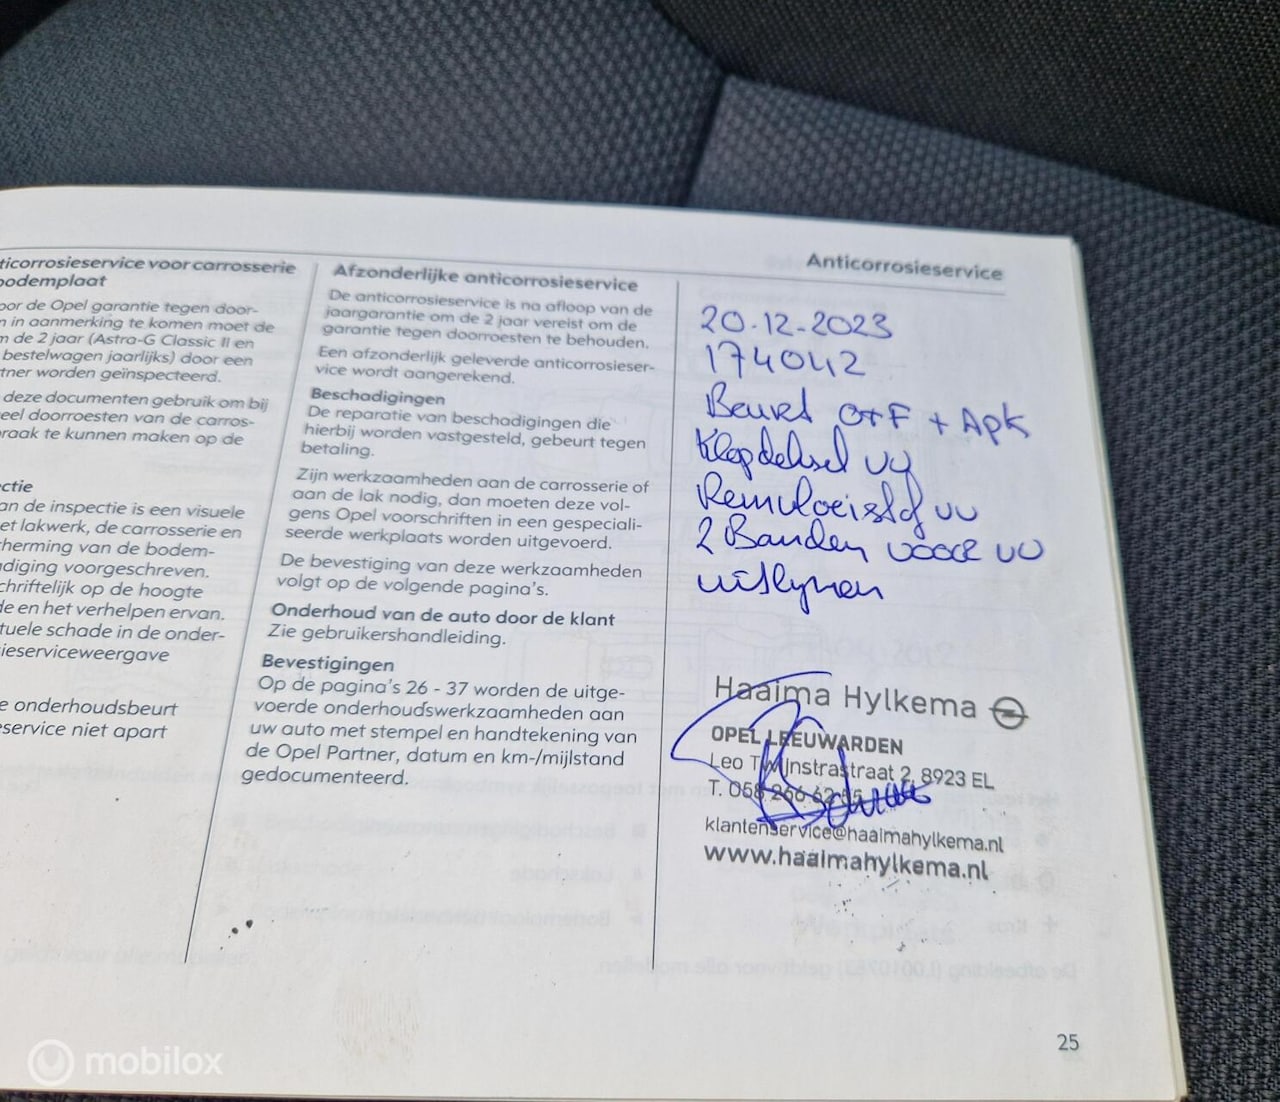 Anticorrosieservice
ticorrosieservice voor carrosserie
bodemplaat
oor de Opel garantie tegen door-
n in aanmerking te komen moet de
n de 2 jaar (Astra-G Classic II en
bestelwagen jaarlijks) door een
tner worden geïnspecteerd.
deze documenten gebruik om bij
eel doorroesten van de carros-
raak te kunnen maken op de
ctie
an de inspectie is een visuele
et lakwerk, de carrosserie en
herming van de bodem-
diging voorgeschreven.
chriftelijk op de hoogte
de en het verhelpen ervan.
tuele schade in de onder-
ieserviceweergave
e onderhoudsbeurt
service niet apart
Afzonderlijke anticorrosieservice
De anticorrosieservice is na afloop van de
jaargarantie om de 2 jaar vereist om de
garantie tegen doorroesten te behouden.
Een afzonderlijk geleverde anticorrosieser-
vice wordt aangerekend.
Beschadigingen
De reparatie van beschadigingen die
hierbij worden vastgesteld, gebeurt tegen
betaling.
Zijn werkzaamheden aan de carrosserie of
aan de lak nodig, dan moeten deze vol-
gens Opel voorschriften in een gespeciali-
seerde werkplaats worden uitgevoerd.
De bevestiging van deze werkzaamheden
volgt op de volgende pagina's.
Onderhoud van de auto door de klant
Zie gebruikershandleiding.
Bevestigingen
Op de pagina's 26 - 37 worden de uitge-
voerde onderhoudswerkzaamheden aan
uw auto met stempel en handtekening van
de Opel Partner, datum en km-/mijlstand
gedocumenteerd.
20-12-2023
174042
Beurt O+F + Apk
Klepdeksel vv
Remvloeistof vv
2 Banden voor vv
uitlijnen
Haaima Hylkema
OPEL LEEUWARDEN
Leo Twijnstrastraat 2, 8923 EL
T. 058 266 62 55
klantenservice@haaimahylkema.nl
www.haaimahylkema.nl
25
mobilox